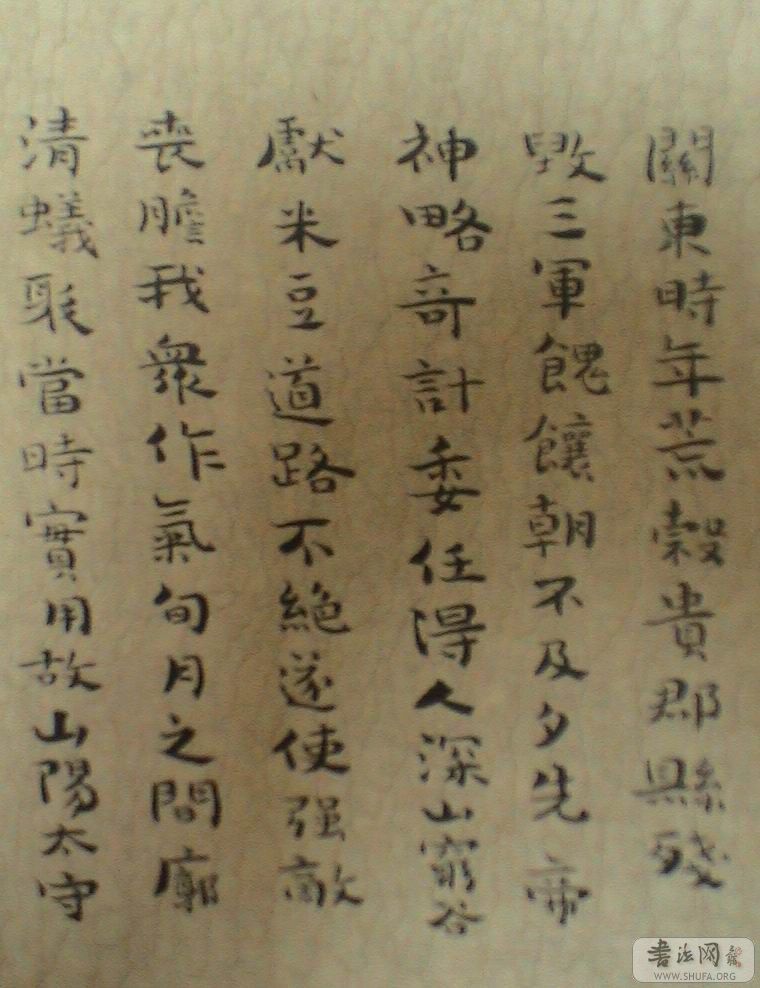 關東時年荒穀貴郡縣殘
毀三軍餽饟朝不及夕先帝
神略奇計委任得人深山窮谷
獻米豆道路不絕遂使强敵
喪膽我衆作氣旬月之間廓
清蟻聚當時實用故山陽太守
書法网
WWW.SHUFA.ORG